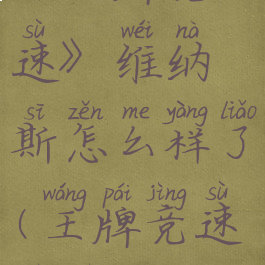 sù wéi nà
速》维纳
sī zěn me yàng liǎo
斯怎么样了
wáng pái jìng sù
(王牌竞速